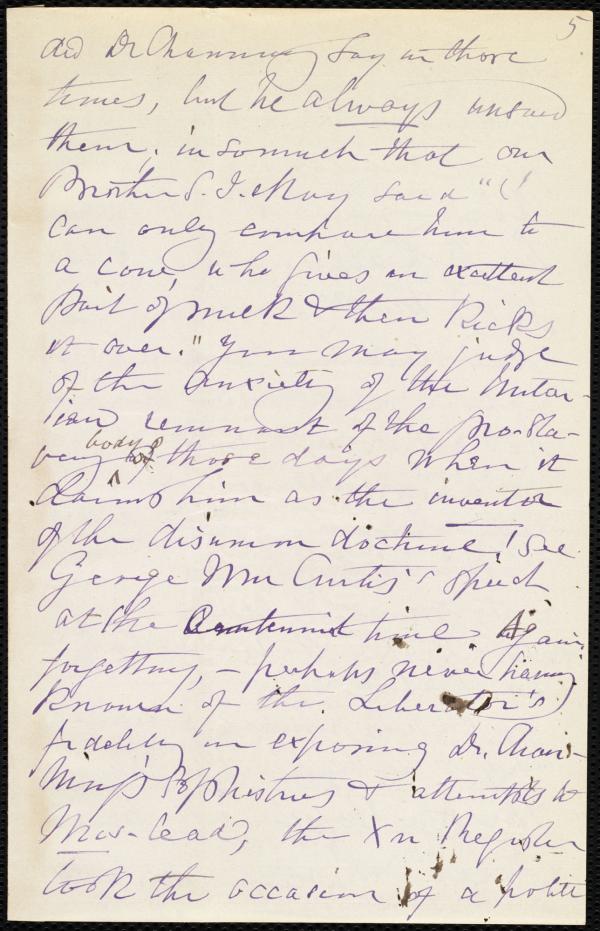 5
did Dr Channing say in those
times, but he always unsaid
them; insomuch that our
Brother S. J. May said "I
can only compare him to
a cow, who gives an excellent
pail of milk & then kicks
it over." You may judge
of the anxiety of the Unitar-
ian remnant of the pro-sla-
very body of those days when it
claims him as the inventor
of the disunion doctrine! See
George Wm Curtis's speech
at the Centennial time Again,
forgetting, - perhaps never having
known of the Liberator's
fidelity in exposing Dr. Chan-
ning's sophistries & attempts to
Mis-lead, the Xn Register
took the occasion of a polite